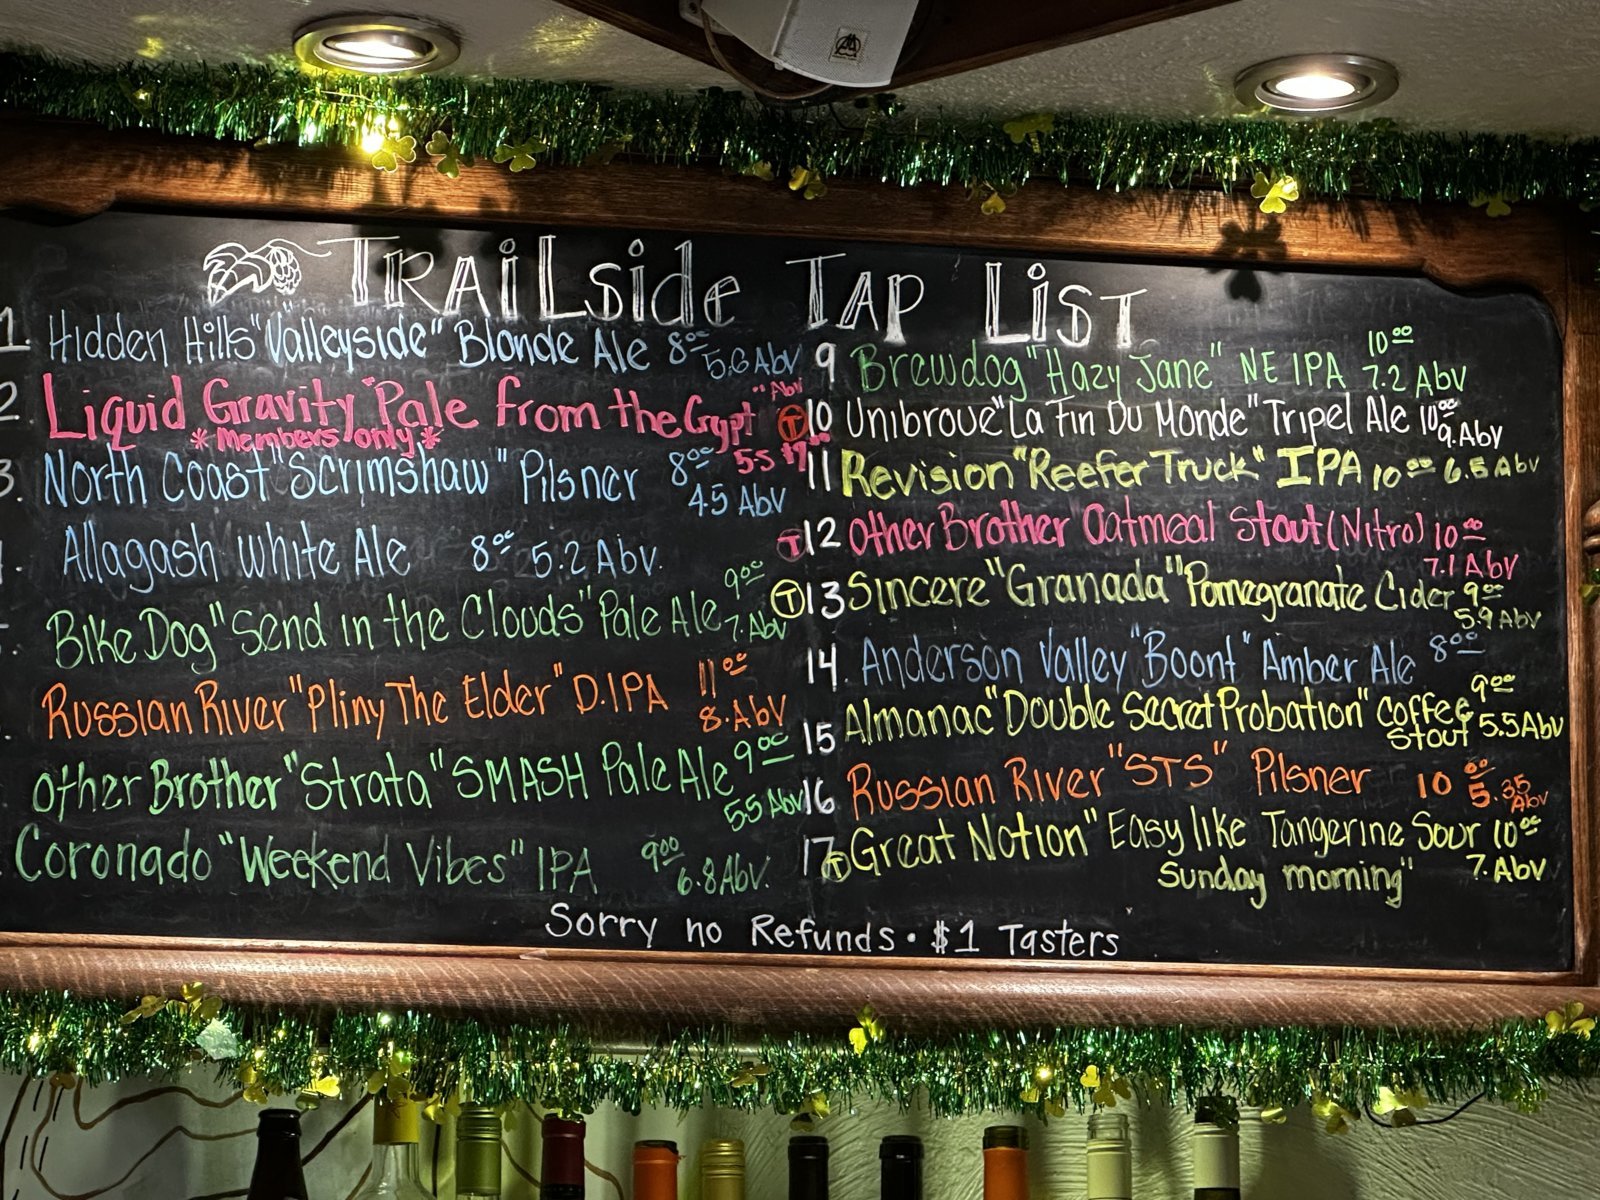 Trailside Tap List
1. Hidden Hills "Valleyside" Blonde Ale 8⁰⁰ 5.6 Abv
2 Liquid Gravity "Pale from the Crypt" Abv
*Members only* 5.5
3. North Coast "Scrimshaw" Pilsner 8⁰⁰ 4.5 Abv
. Allagash White Ale 8⁰⁰ 5.2 Abv.
Bike Dog "Send in the Clouds" Pale Ale 9⁰⁰ 7. Abv
. Russian River "Pliny The Elder" D.IPA 11⁰⁰ 8. Abv
Other Brother "Strata" SMASH Pale Ale 9⁰⁰ 5.5 Abv
. Coronado "Weekend Vibes" IPA 9⁰⁰ 6.8 Abv.
9 Brewdog "Hazy Jane" NE IPA 10⁰⁰ 7.2 Abv
T 10 Unibroue "La Fin Du Monde" Tripel Ale 10⁰⁰ 9. Abv
11 Revision "Reefer Truck" IPA 10⁰⁰ 6.5 Abv
T 12 Other Brother Oatmeal Stout (Nitro) 10⁰⁰ 7.1 Abv
T 13 Sincere "Granada" Pomegranate Cider 9⁰⁰ 5.9 Abv
14. Anderson Valley "Boont" Amber Ale 8⁰⁰
15 Almanac "Double Secret Probation" Coffee Stout 9⁰⁰ 5.5 Abv
16 Russian River "STS" Pilsner 10⁰⁰ 5.35 Abv
17 T Great Notion "Easy like Tangerine Sour 10⁰⁰
Sunday morning" 7. Abv
Sorry no Refunds • $1 Tasters